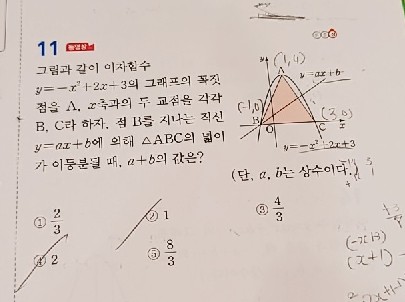 11 동영상
그림과 같이 이차함수
y=-x²+2x+3의 그래프의 꼭짓
점을 A, x축과의 두 교점을 각각
B, C라 하자. 점 B를 지나는 직선
y=ax+b에 의해 △ABC의 넓이
가 이등분될 때, a+b의 값은?
(단, a, b는 상수이다.)
y
(1,4)
A
y=ax+b
(-1,0)
(3,0)
B
O
C
x
y=-x²+2x+3
① 2/3
② 1
③ 4/3
④ 2
⑤ 8/3
(-x+3)
(x+1)